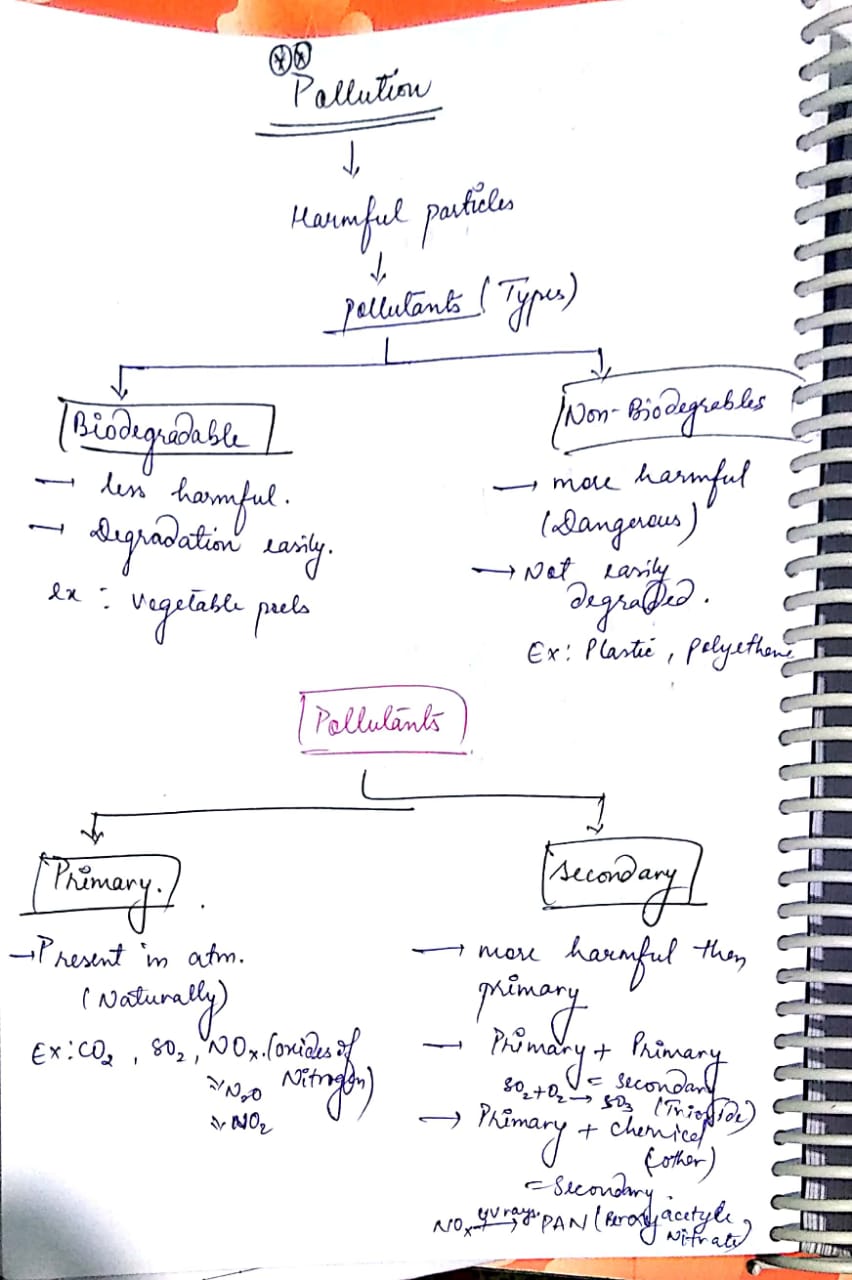 Pollution
↓
Harmful particles
↓
Pollutants (Types)
Biodegradable
→ less harmful.
→ Degradation easily.
ex : vegetable peels
Non-Biodegrables
→ more harmful
(Dangerous)
→ Not easily
degraded.
Ex: Plastic, polyethene
Pollutants
Primary.
→ Present in atm.
(Naturally)
Ex: CO2, SO2, NOx. (oxides of
Nitrogen)
N2O
NO2
Secondary
→ more harmful then
primary
→ Primary + Primary
= secondary
SO2+O2 → SO3 (Trioxide)
→ Primary + chemical
(other)
= Secondary.
NOx UV rays. → PAN (Peroxyacetyle
Nitrate)